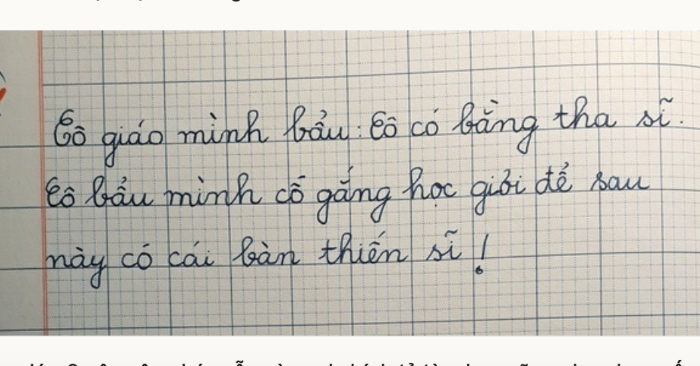 Cô giáo mình bảu: Cô có bằng tha sĩ.
Cô bảu mình cố gắng học giỏi để sau
này có cái bàn thiến sĩ!